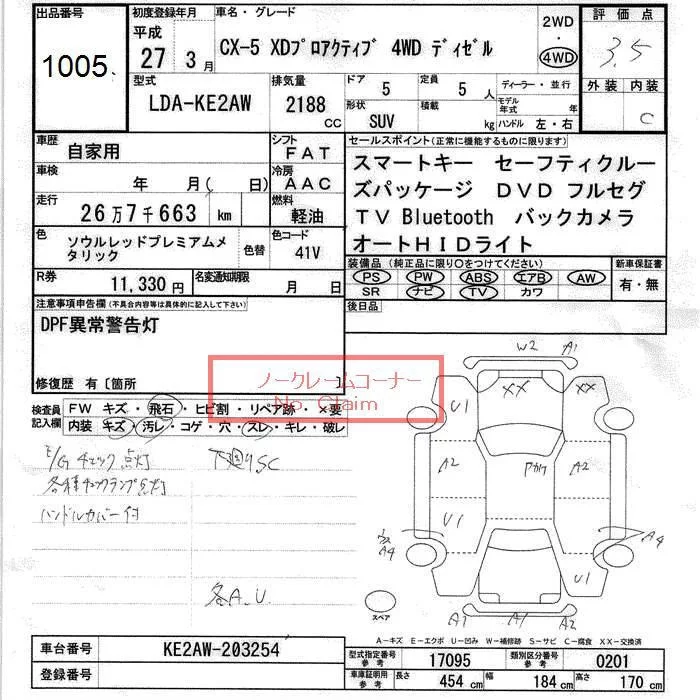 出品番号 初度登録年月 車名・グレード 2WD 評価点
平成
1005 27 3月 CX-5 XDプロアクティブ 4WD ディゼル ・ 4WD 3.5
型式 排気量 ドア 定員 ディーラー・並行 外装 内装
LDA-KE2AW 2188 CC 5 5人 モデル年式 年 C
形状 SUV 積載 kg ハンドル 左・右
車歴 自家用 シフト FAT セールスポイント(正常に機能するものに限ります)
車検 年 月( 日) 冷房 AAC スマートキー セーフティクルー
走行 26万7千663 km 燃料 軽油 ズパッケージ DVD フルセグ
色 ソウルレッドプレミアムメタリック 色替 色コード 41V TV Bluetooth バックカメラ
オートHIDライト
R券 11,330円 名変通知期限 月 日 装備品(純正品に限り〇をつけてください) 新車保証書
PS PW ABS エアB AW 有・無
SR ナビ TV カワ
注意事項申告欄(不具合内容等は具体的に記入して下さい) 後日品
DPF異常警告灯
修復歴 有〔箇所 〕
ノークレームコーナー
No. Claim
検査員記入欄 FW キズ・飛石・ヒビ割・リペア跡・×要
内装 キズ・汚レ・コゲ・穴・スレ・キレ・破レ
E/Gチェック点灯 下廻りSC
各種チェックランプ点灯
ハンドルカバー付
各A.U.
W2 A1
XX XX
U1
A2 A2
U1
A4 A4
U1
A1 A2
スペア
A-キズ E-エクボ U-凹み W-補修跡 S-サビ C-腐食 XX-交換済
車台番号 KE2AW-203254 型式指定番号 参考 17095 類別区分番号 参考 0201
登録番号 車庫証明用 参考 長さ 454 cm 幅 184 cm 高さ 170 cm